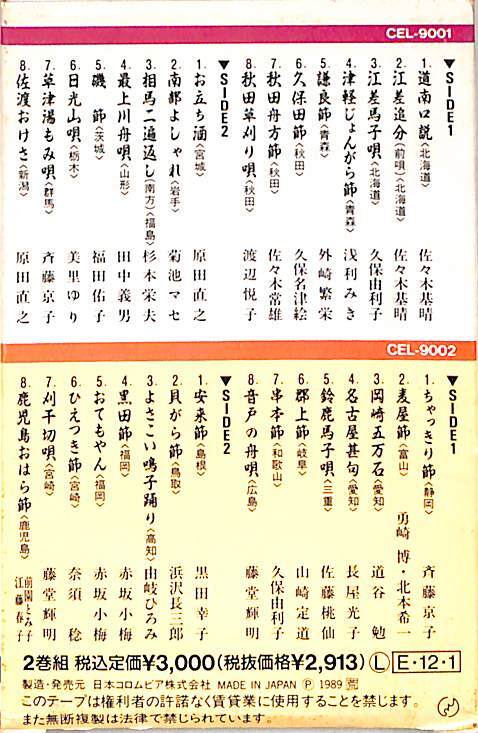 CEL-9001
▼SIDE1
1. 道南口説〈北海道〉 佐々木基晴
2. 江差追分(前唄)〈北海道〉 佐々木基晴
3. 江差馬子唄〈北海道〉 久保由利子
4. 津軽じょんがら節〈青森〉 浅利みき
5. 謙良節〈青森〉 外崎繁栄
6. 久保田節〈秋田〉 久保名津絵
7. 秋田舟方節〈秋田〉 佐々木常雄
8. 秋田草刈り唄〈秋田〉 渡辺悦子
▼SIDE2
1. お立ち酒〈宮城〉 原田直之
2. 南部よしゃれ〈岩手〉 菊池マセ
3. 相馬二遍返し(南方)〈福島〉 杉本栄夫
4. 最上川舟唄〈山形〉 田中義男
5. 磯節〈茨城〉 福田佑子
6. 日光山唄〈栃木〉 美里ゆり
7. 草津湯もみ唄〈群馬〉 斉藤京子
8. 佐渡おけさ〈新潟〉 原田直之
CEL-9002
▼SIDE1
1. ちゃっきり節〈静岡〉 斉藤京子
2. 麦屋節〈富山〉 勇崎 博・北本希一
3. 岡崎五万石〈愛知〉 道谷 勉
4. 名古屋甚句〈愛知〉 長屋光子
5. 鈴鹿馬子唄〈三重〉 佐藤桃仙
6. 郡上節〈岐阜〉 山崎定道
7. 串本節〈和歌山〉 久保由利子
8. 音戸の舟唄〈広島〉 藤堂輝明
▼SIDE2
1. 安来節〈島根〉 黒田幸子
2. 貝がら節〈鳥取〉 浜沢長三郎
3. よさこい鳴子踊り〈高知〉 由岐ひろみ
4. 黒田節〈福岡〉 赤坂小梅
5. おてもやん〈福岡〉 赤坂小梅
6. ひえつき節〈宮崎〉 奈須 稔
7. 刈干切唄〈宮崎〉 藤堂輝明
8. 鹿児島おはら節〈鹿児島〉 前園とみ子 江藤春子
2巻組 税込定価¥3,000(税抜価格¥2,913) Ⓛ E・12・1
製造・発売元 日本コロムビア株式会社 MADE IN JAPAN Ⓟ 1989
このテープは権利者の許諾なく賃貸業に使用することを禁じます。
また無断複製は法律で禁じられています。